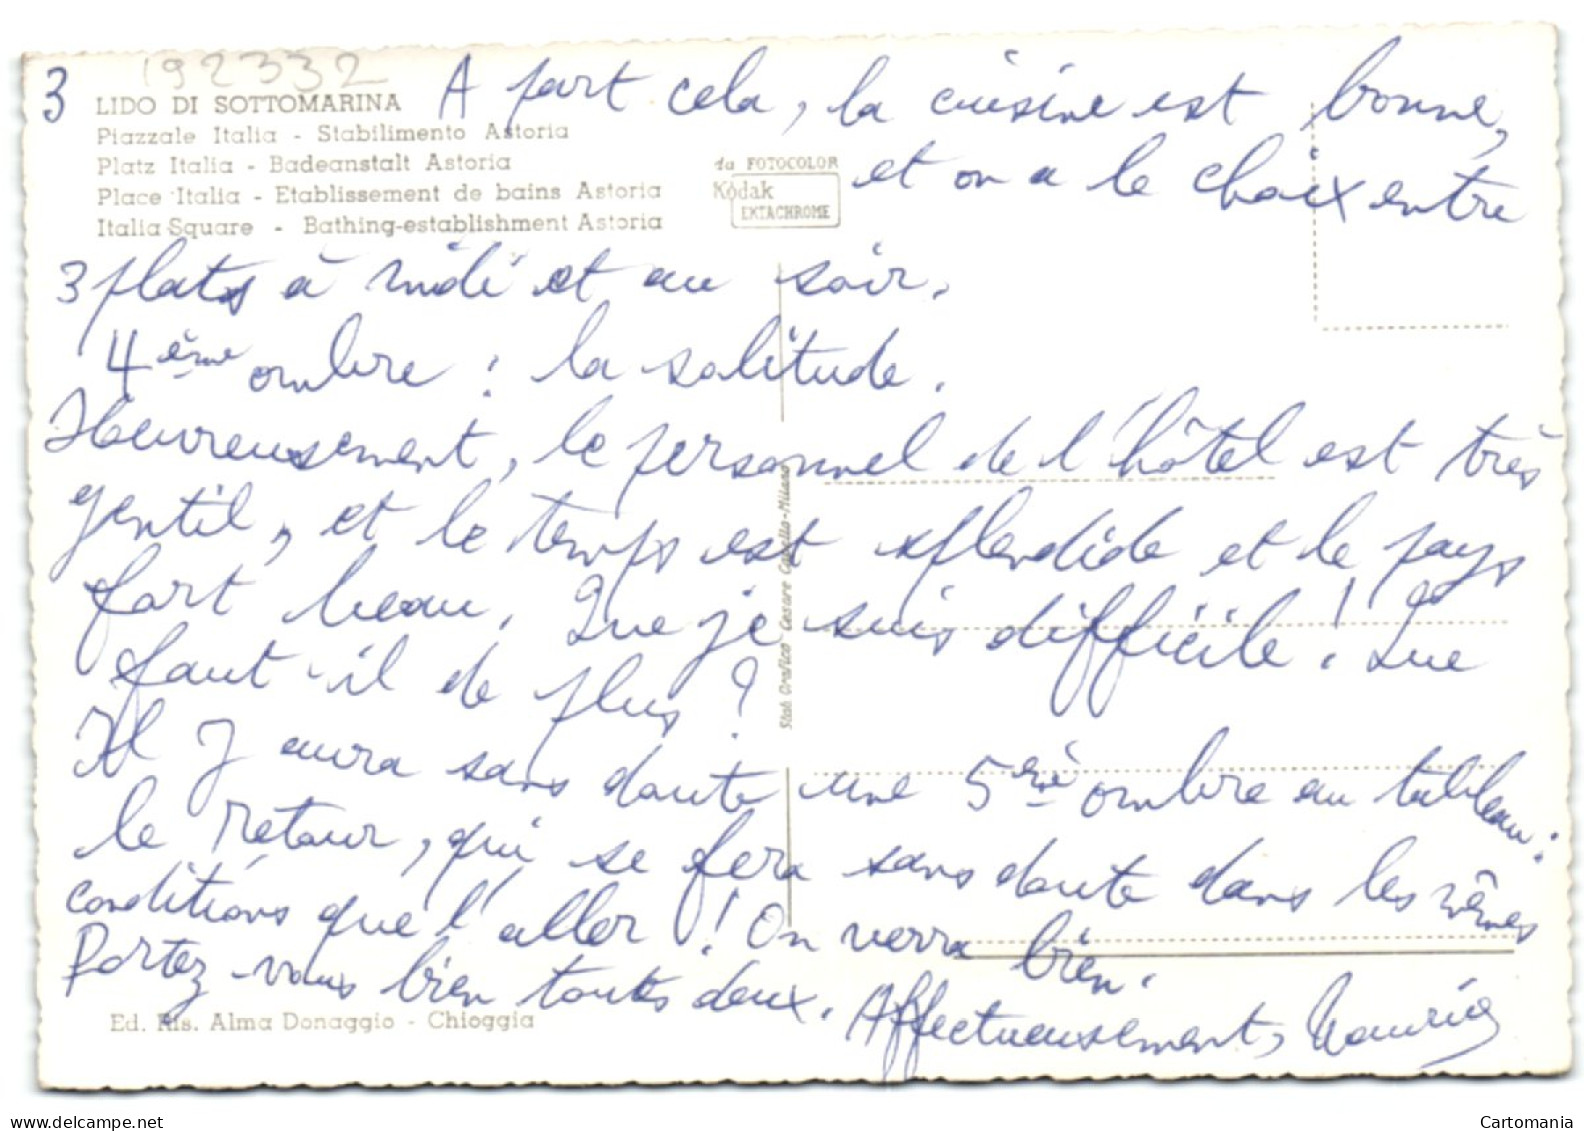 192332
3
LIDO DI SOTTOMARINA
Piazzale Italia - Stabilimento Astoria
Platz Italia - Badeanstalt Astoria
Place Italia - Etablissement de bains Astoria
Italia Square - Bathing-establishment Astoria
da FOTOCOLOR
Kodak
EKTACHROME
A part cela, la cuisine est bonne,
et on a le choix entre
3 plats à midi et au soir.
4ème ombre : la solitude.
Heureusement, le personnel de l'hôtel est très
gentil, et le temps est splendide et le pays
fort beau. Que je suis difficile ! Que
faut-il de plus ?
Il y aura sans doute une 5me ombre au tableau :
le retour, qui se fera sans doute dans les mêmes
conditions que l'aller ! On verra bien.
Portez-vous bien toutes deux. Affectueusement, Maurice
Stab. Grafico Cesare Capello-Milano
Ed. Ris. Alma Donaggio - Chioggia
Cartomania